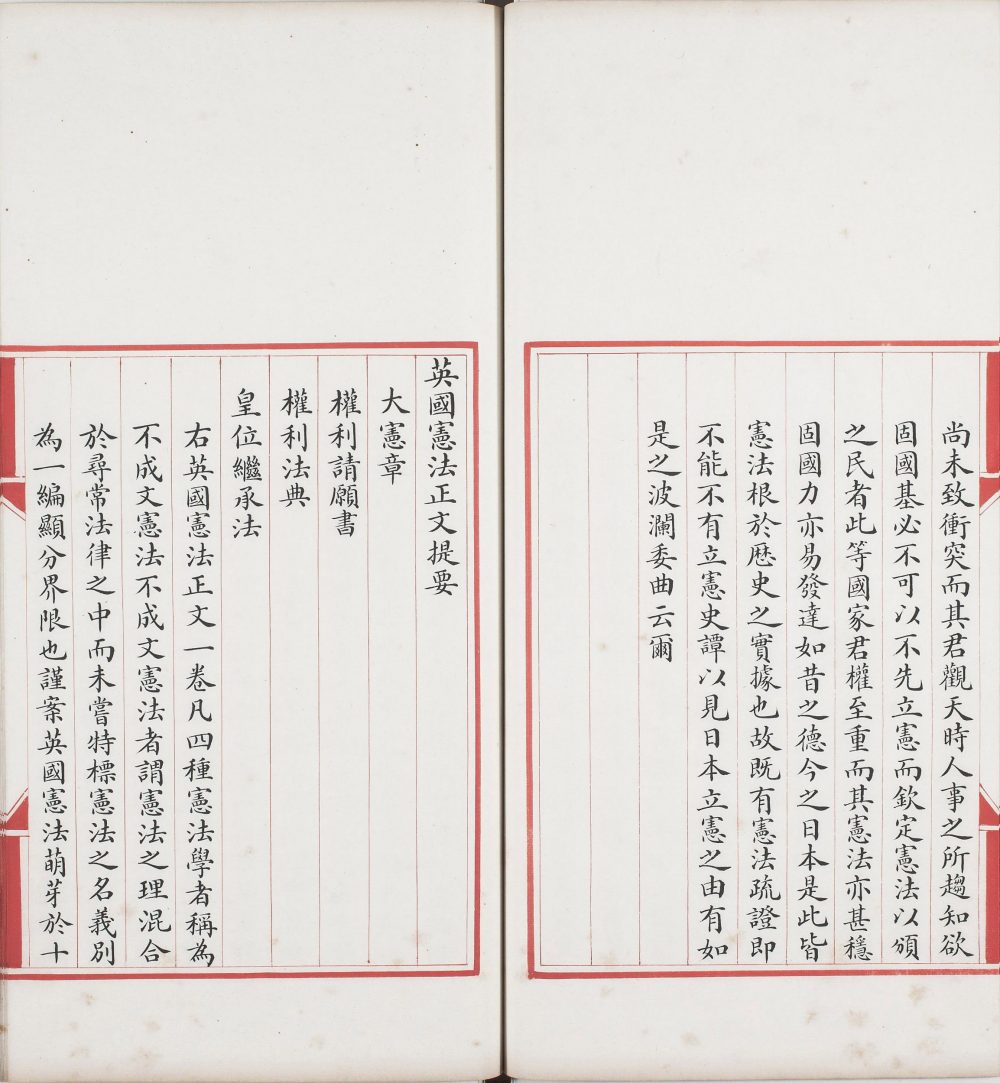 尚未致衝突而其君觀天時人事之所趨知欲
固國基必不可以不先立憲而欽定憲法以頒
之民者此等國家君權至重而其憲法亦甚穩
固國力亦易發達如昔之德今之日本是此皆
憲法根於歷史之實據也故既有憲法疏證即
不能不有立憲史譚以見日本立憲之由有如
是之波瀾委曲云爾
英國憲法正文提要
大憲章
權利請願書
權利法典
皇位繼承法
右英國憲法正文一卷凡四種憲法學者稱為
不成文憲法不成文憲法者謂憲法之理混合
於尋常法律之中而未嘗特標憲法之名義別
為一編顯分界限也謹案英國憲法萌芽於十